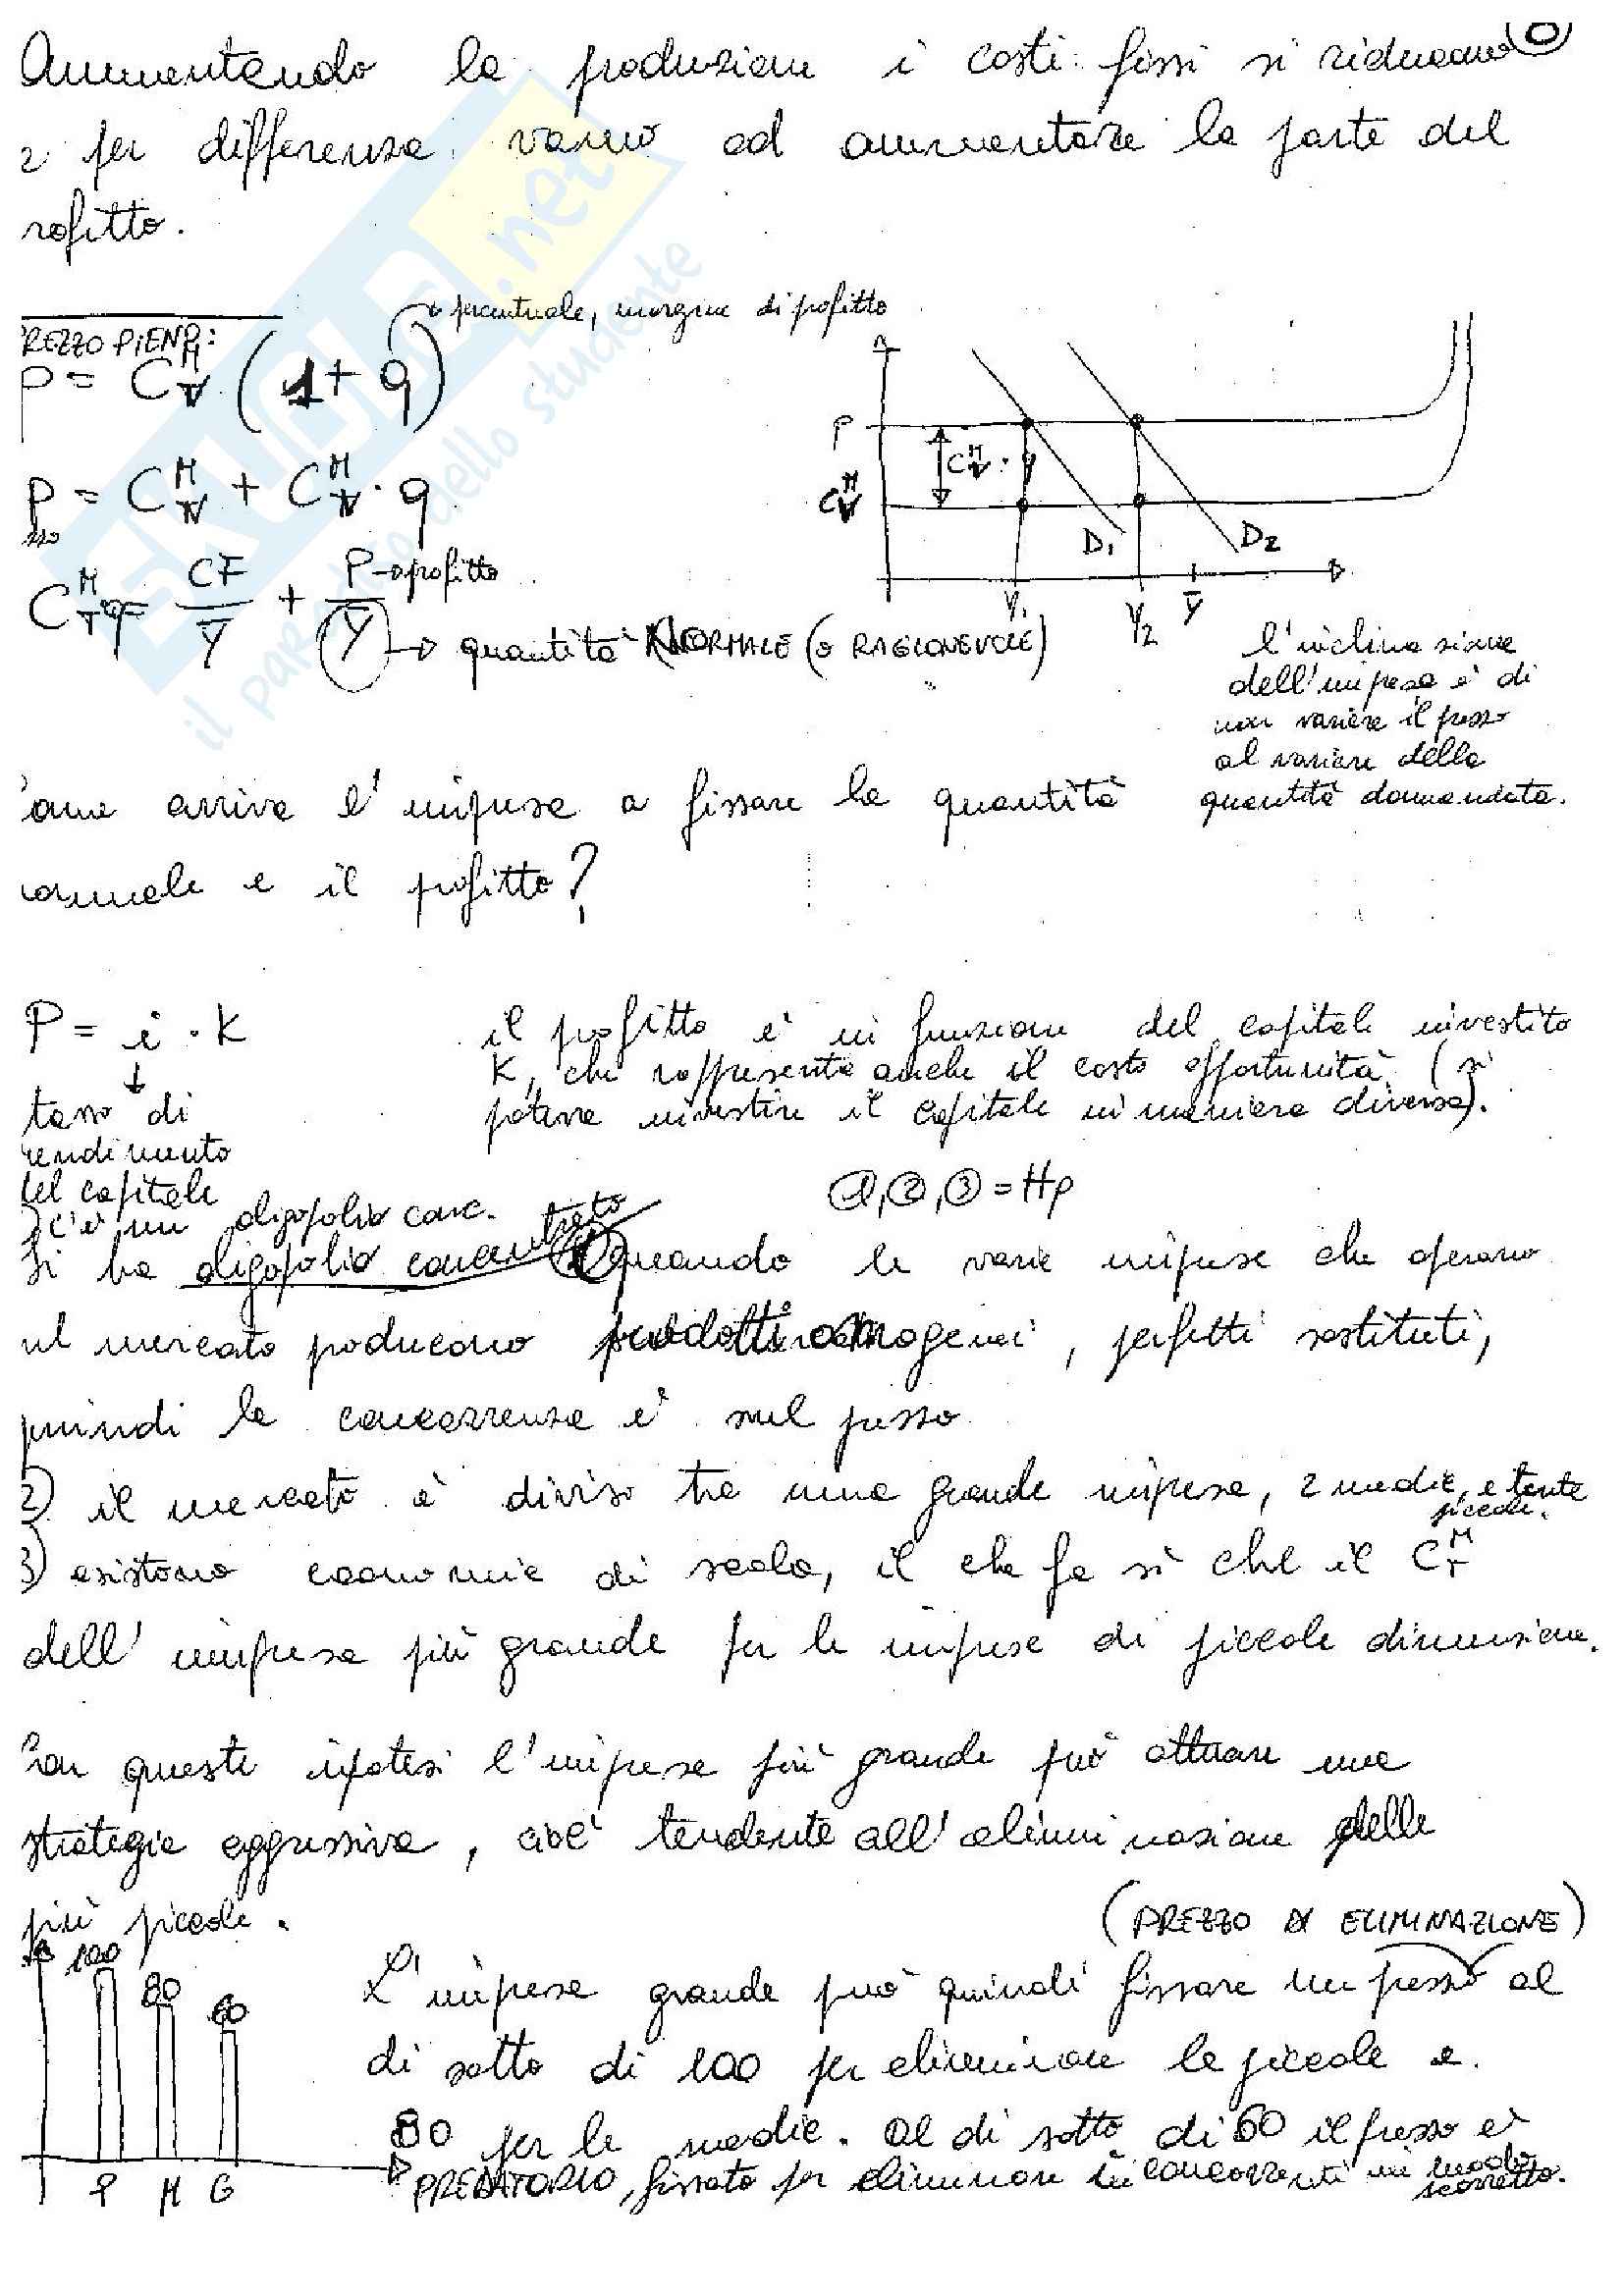 Aumentando la produzione i costi fissi si riducono
e per differenza vanno ad aumentare la parte del
rofitto.
percentuale, margine di profitto
REZZO PIENO:
P = C^M_V (1 + q)
P = C^M_V + C^M_V · q
C^M_V q = CF/Y + P/Y → profitto
→ quantità NORMALE (o RAGIONEVOLE)
P
C^M_V · q
C^M_V
D1 D2
Y1 Y2 Y
l'inclinazione
dell'impresa è di
non variare il prezzo
al variare della
quantità domandata.
ome arriva l'impresa a fissare la quantità
normale e il profitto?
P = i · K
tasso di
rendimento
del capitale
il profitto è in funzione del capitale investito
K, che rappresenta anche il costo opportunità (si
poteva investire il capitale in maniera diversa).
①,②,③ = Hp
c'è un oligopolio conc.
Si ha oligopolio concentrato quando le varie imprese che operano
ul mercato producono prodotti omogenei, perfetti sostituti,
quindi la concorrenza è sul prezzo
2) il mercato è diviso tra una grande impresa, 2 medie, e tante
piccole.
3) esistono economie di scala, il che fa sì che il C^M_T
dell'impresa più grande per le imprese di piccole dimensione.
Con queste ipotesi l'impresa più grande può attuare una
strategia aggressiva, cioè tendente all'eliminazione delle
più piccole.
(PREZZO DI ELIMINAZIONE)
100 80 60
P M G
L'impresa grande può quindi fissare un prezzo al
di sotto di 100 per eliminare le piccole e
80 per le medie. Al di sotto di 60 il prezzo è
PREDATORIO, fissato per eliminare i concorrenti in modo
scorretto.
EXUOLA.net
il paradiso dello studente